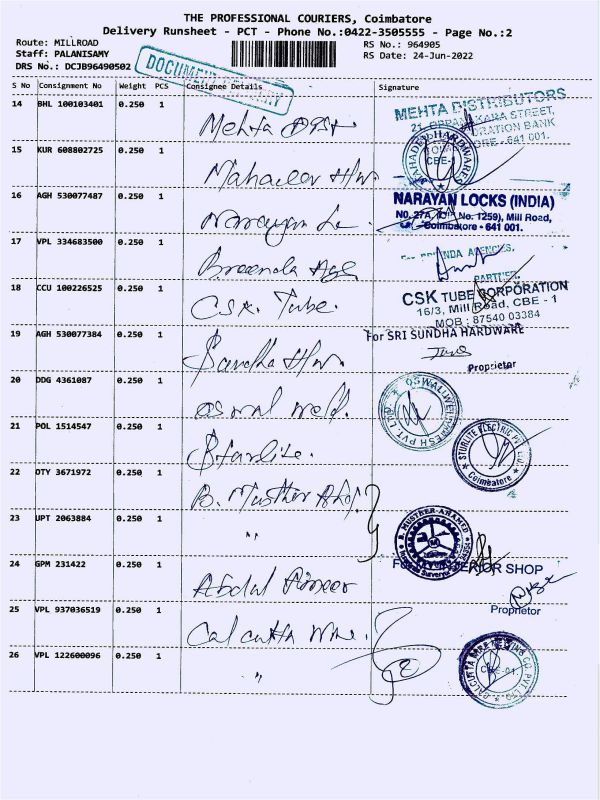 THE PROFESSIONAL COURIERS, Coimbatore
Delivery Runsheet - PCT - Phone No.:0422-3505555 - Page No.:2
Route: MILLROAD
RS No.: 964905
Staff: PALANISAMY
RS Date: 24-Jun-2022
DRS No.: DCJB96490502
DOCUMENT
S No Consignment No Weight PCS Consignee Details Signature
14 BHL 100103401 0.250 1
Mehta Dist
MEHTA DISTRIBUTORS
STREET,
BANK
641 001.
15 KUR 608802725 0.250 1
Mahadev H/w
MAHADEV HARDWARE
CBE-1
16 AGH 530077487 0.250 1
Narayan Lo
NARAYAN LOCKS (INDIA)
NO. 27A, No. 1259), Mill Road,
Coimbatore - 641 001.
17 VPL 334683500 0.250 1
Breenda Age
AGENCIES.
PARTNER.
18 CCU 100226525 0.250 1
CSK. Tube.
CSK TUBE CORPORATION
16/3, Mill Road, CBE - 1
MOB : 87540 03384
19 AGH 530077384 0.250 1
Sundha H/w.
For SRI SUNDHA HARDWARE
Proprietor
20 DDG 4361087 0.250 1
Oswal Weld.
21 POL 1514547 0.250 1
Starlite.
STURLITE ELECTRIC PVT LTD
Coimbatore
22 DTY 3671972 0.250 1
B. Musther Ahd.
B. MUSTHER-AHAMED
Surveyor
23 UPT 2063884 0.250 1
"
24 GPM 231422 0.250 1
Abdul Ameer
SHOP
Proprietor
25 VPL 937036519 0.250 1
Calcutta Wire.
26 VPL 122600096 0.250 1
"